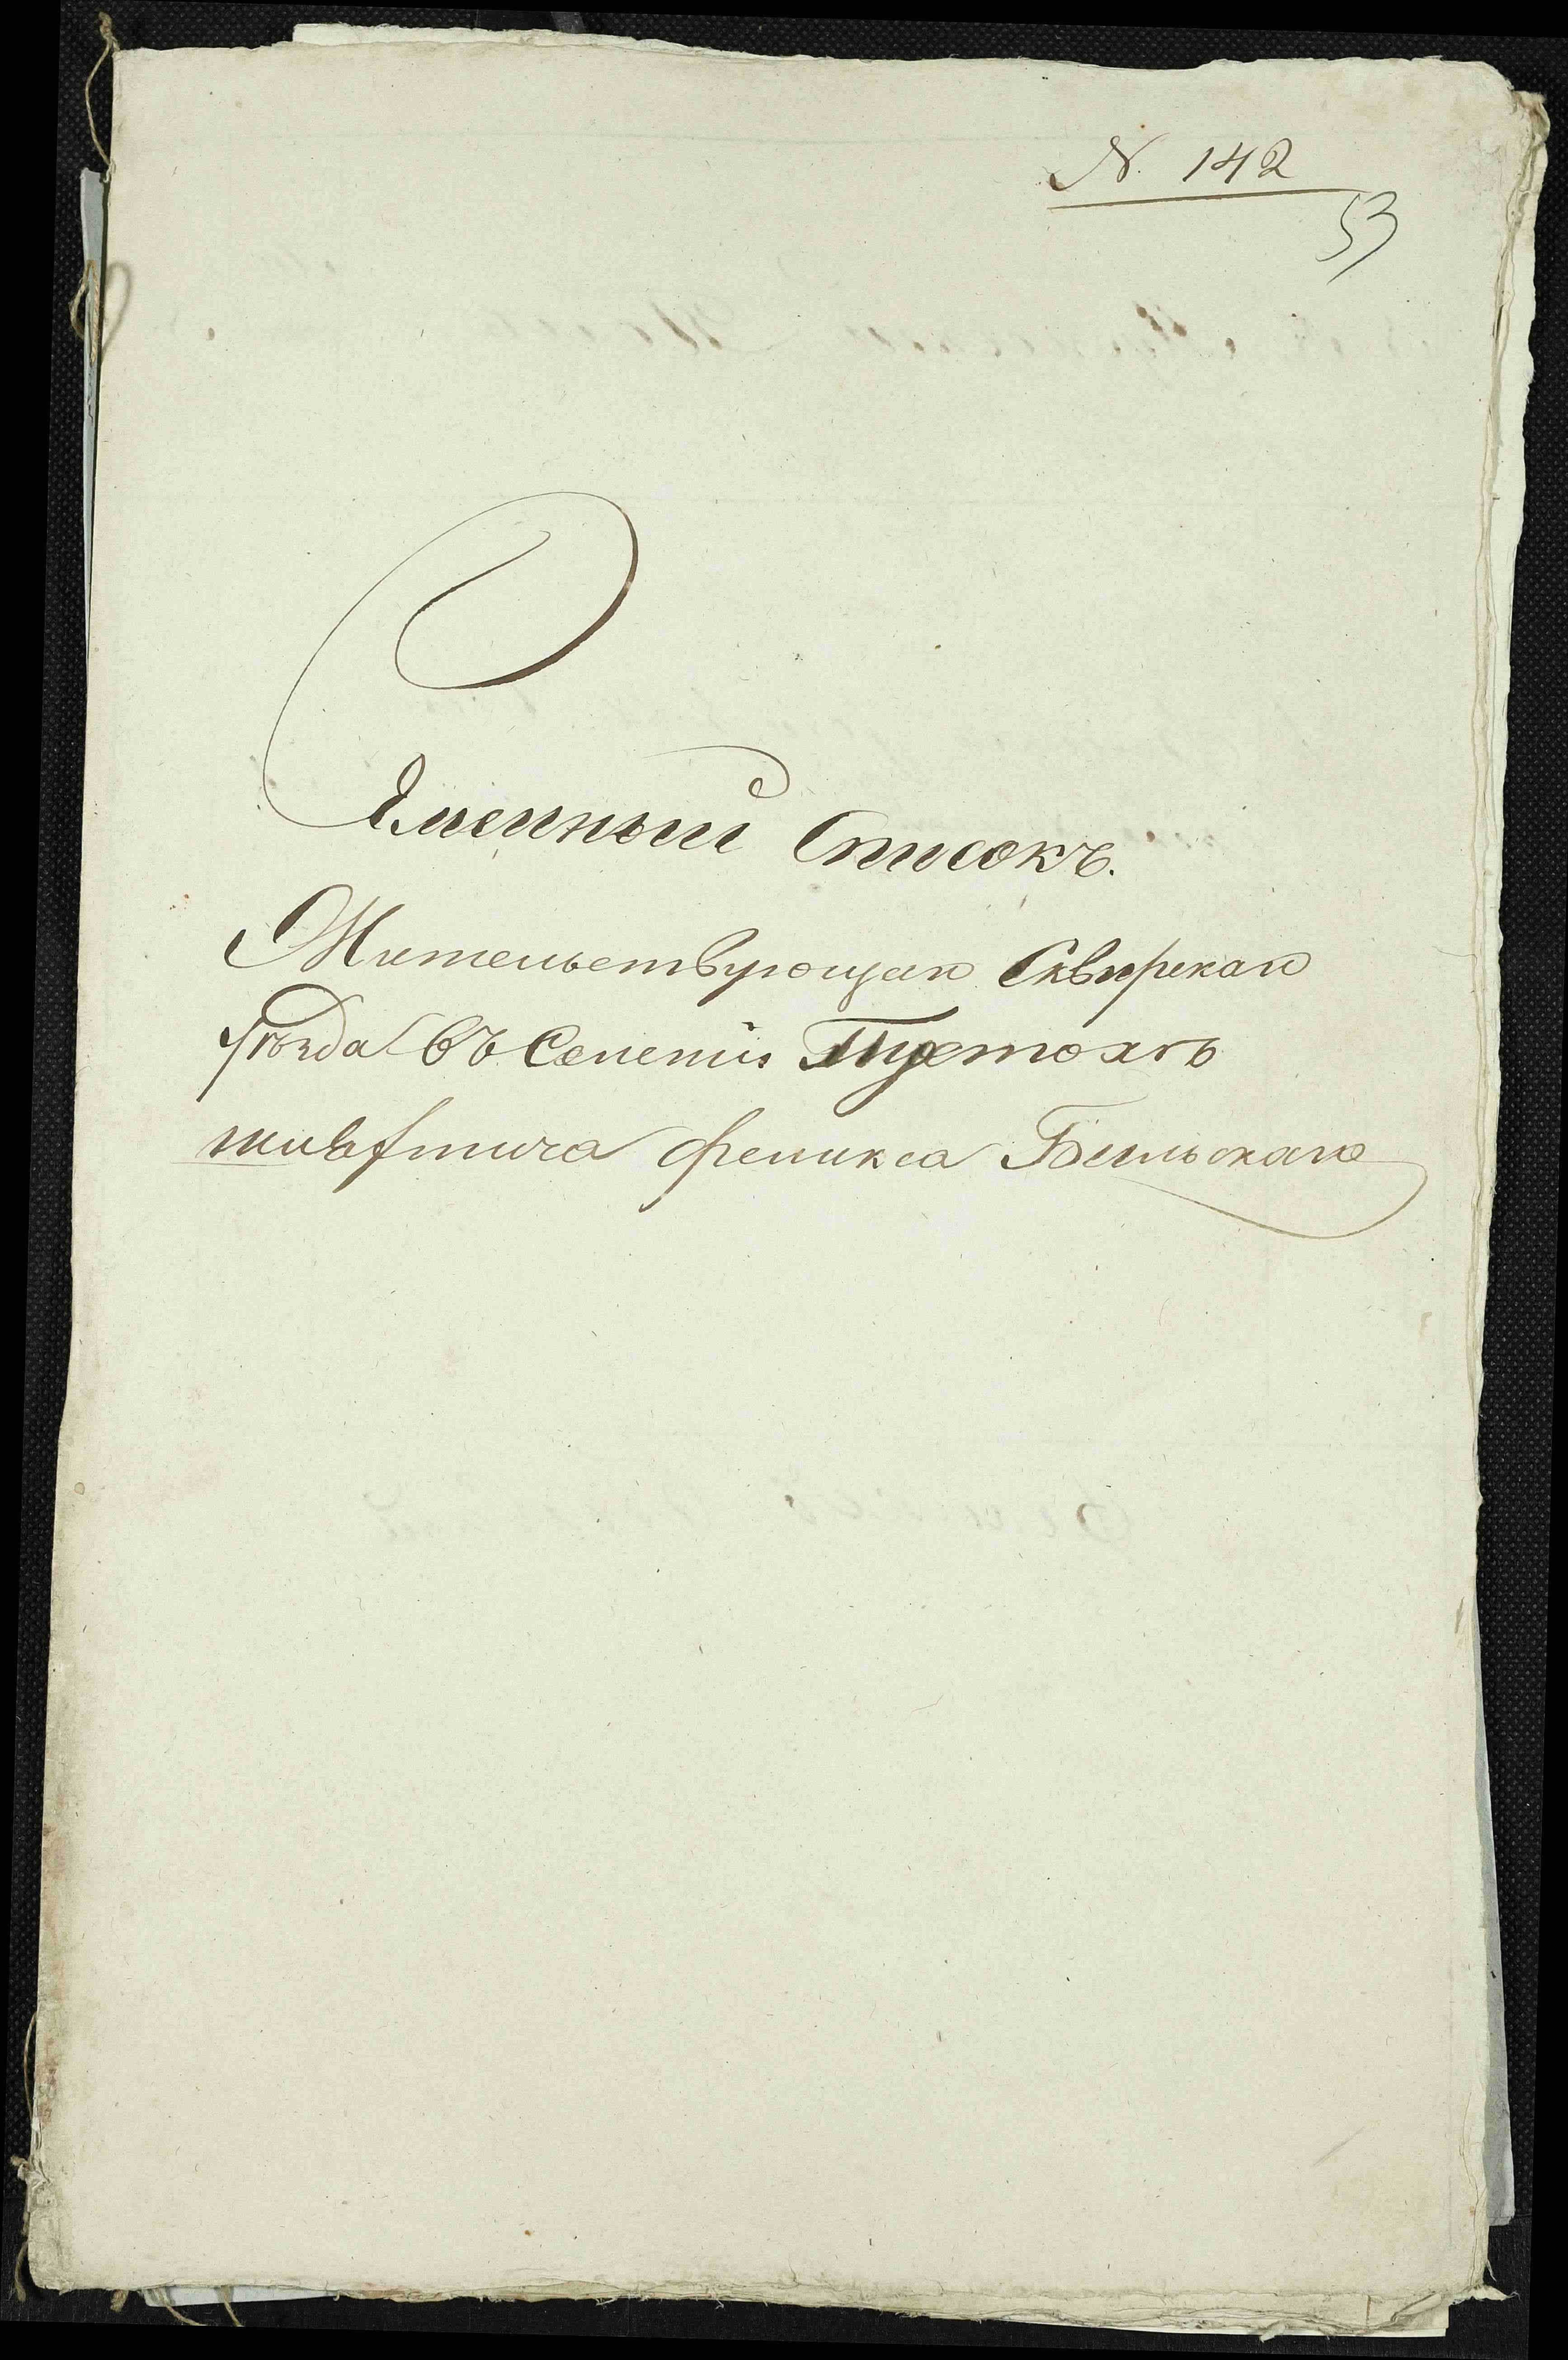 N. 142
53
Яменный Списокъ.
Жительствующаго Сквирскаго
Уѣзда въ Селеніи Пустохѣ
шляхтича Феликса Бельскаго